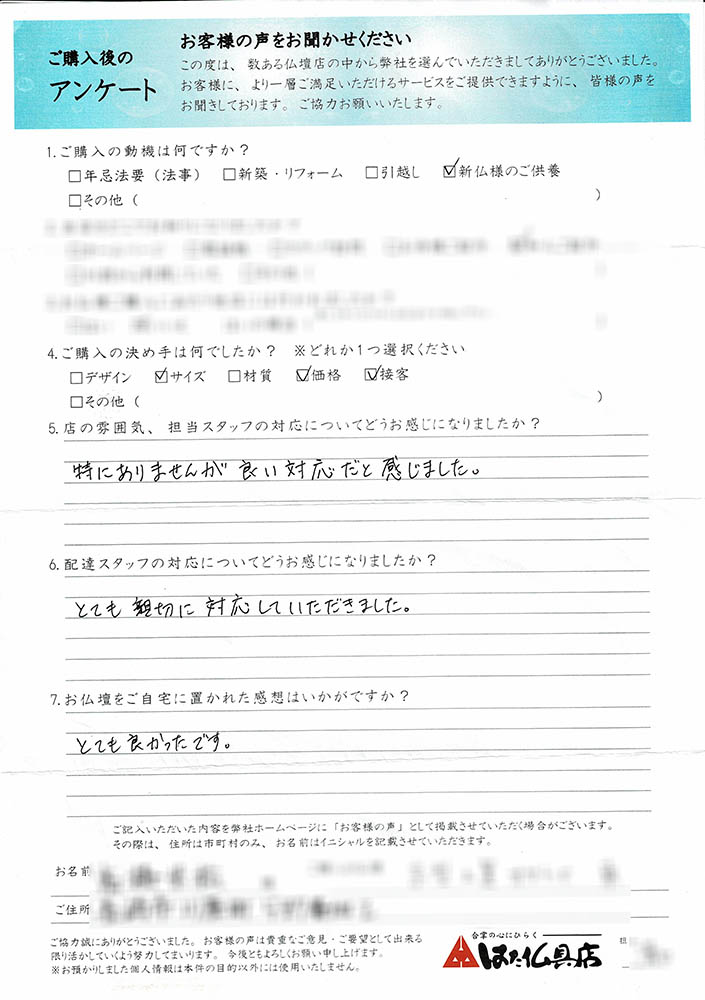 ご購入後の
アンケート
お客様の声をお聞かせください
この度は、数ある仏壇店の中から弊社を選んでいただきましてありがとうございました。
お客様に、より一層ご満足いただけるサービスをご提供できますように、皆様の声を
お聞きしております。ご協力お願いいたします。
1.ご購入の動機は何ですか?
□年忌法要(法事) □新築・リフォーム □引越し ☑新仏様のご供養
□その他( )
4.ご購入の決め手は何でしたか? ※どれか1つ選択ください
□デザイン ☑サイズ □材質 ☑価格 ☑接客
□その他( )
5.店の雰囲気、担当スタッフの対応についてどうお感じになりましたか?
特にありませんが良い対応だと感じました。
6.配達スタッフの対応についてどうお感じになりましたか?
とても親切に対応していただきました。
7.お仏壇をご自宅に置かれた感想はいかがですか?
とても良かったです。
ご記入いただいた内容を弊社ホームページに「お客様の声」として掲載させていただく場合がございます。
その際は、住所は市町村のみ、お名前はイニシャルを記載させていただきます。
お名前
ご住所
ご協力誠にありがとうございました。お客様の声は貴重なご意見・ご要望として出来る
限り活かしていくよう努力してまいります。今後ともよろしくお願い申し上げます。
※お預かりしました個人情報は本件の目的以外には使用いたしません。
合掌の心にひらく
はた仏具店
担